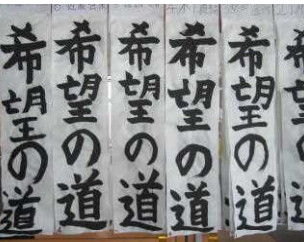 希望の道
希望の道
希望の道
希望の道
希望の道